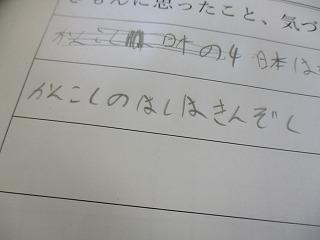 ぎもんに思ったこと、気づ
かんこし 日本の4 日本は
かんこしのはしはきんぞし